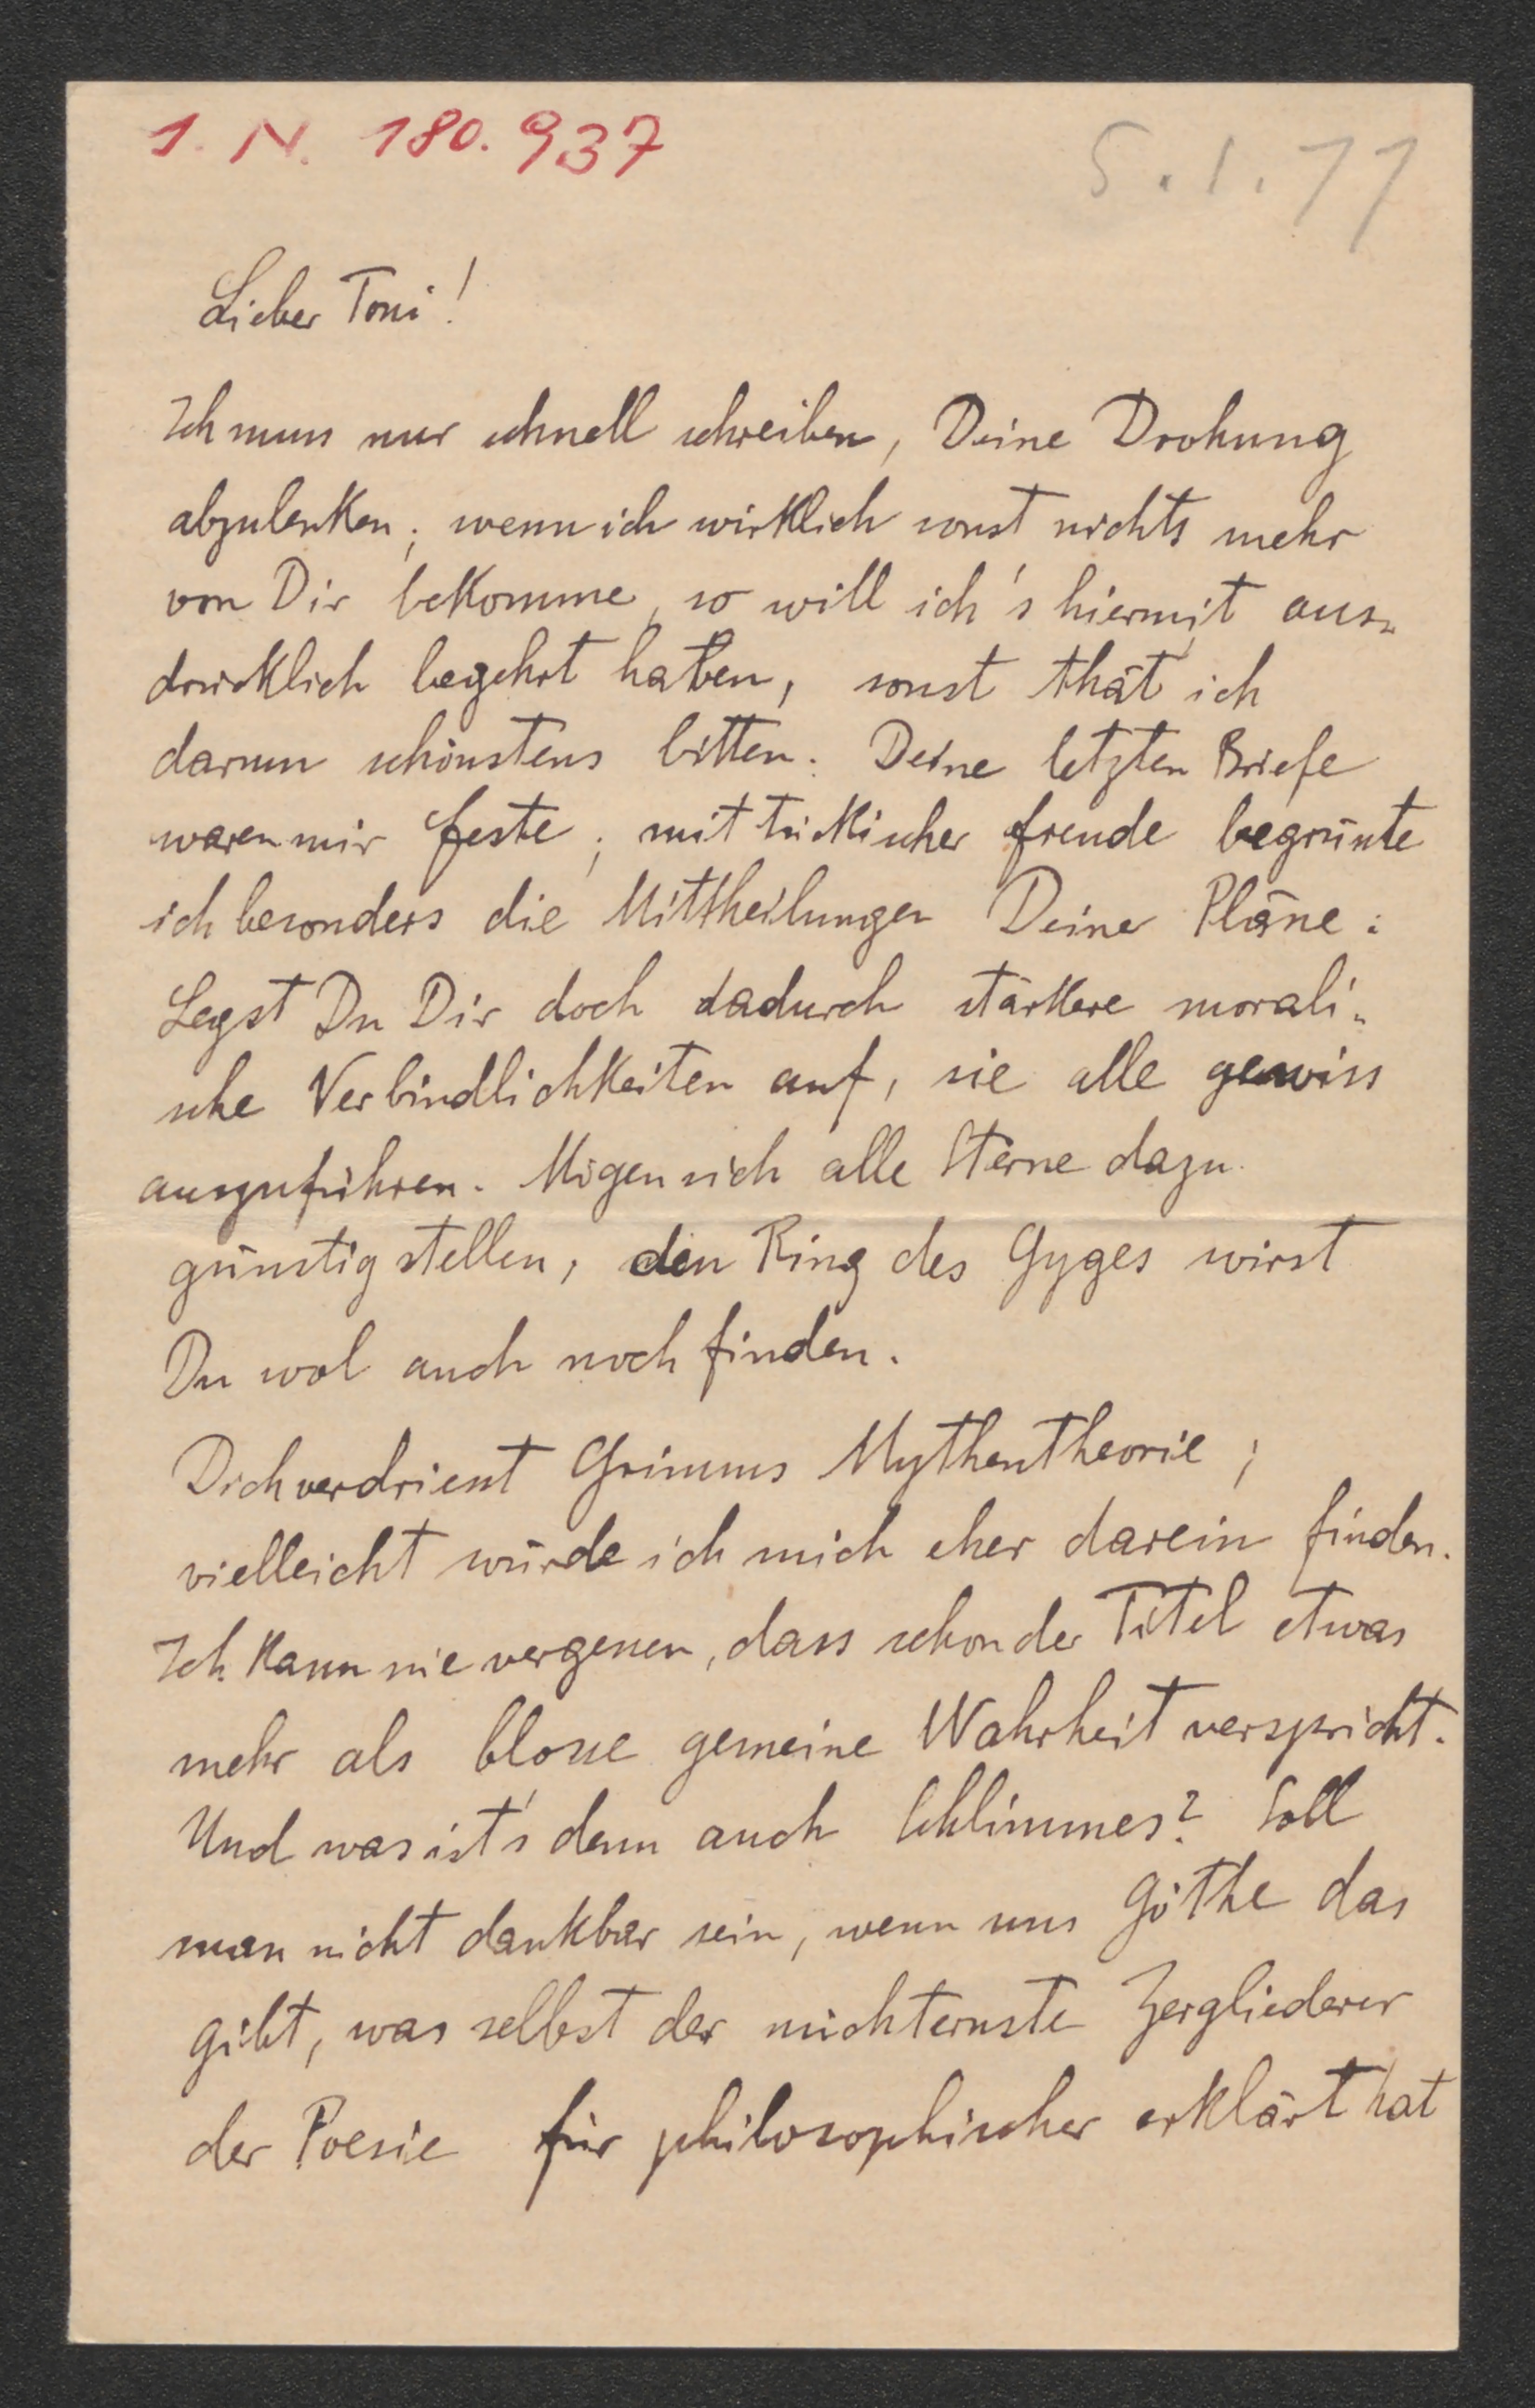 1. N. 180.937
5.1.77
Lieber Toni!
Ich muss nur schnell schreiben, Deine Drohung
abzulenken; wenn ich wirklich sonst nichts mehr
von Dir bekomme, so will ich's hiermit aus-
drücklich begehrt haben, sonst thät ich
darum schönstens bitten. Deine letzten Briefe
waren mir Feste; mit tückischer Freude begrüsste
ich besonders die Mittheilungen Deiner Pläne:
Legst Du Dir doch dadurch stärkere morali-
sche Verbindlichkeiten auf, sie alle gewiss
auszuführen. Mögen sich alle Sterne dazu
günstig stellen, den Ring des Gyges wirst
Du wol auch noch finden.
Dich verdriesst Grimms Mythentheorie;
vielleicht würde ich mich eher darein finden.
Ich kann nie vergessen, dass schon der Titel etwas
mehr als blosse gemeine Wahrheit verspricht.
Und was ist's denn auch Schlimmes? Soll
man nicht dankbar sein, wenn uns Göthe das
gibt, was selbst der nüchternste Zergliederer
der Poesie für philosophischer erklärt hat